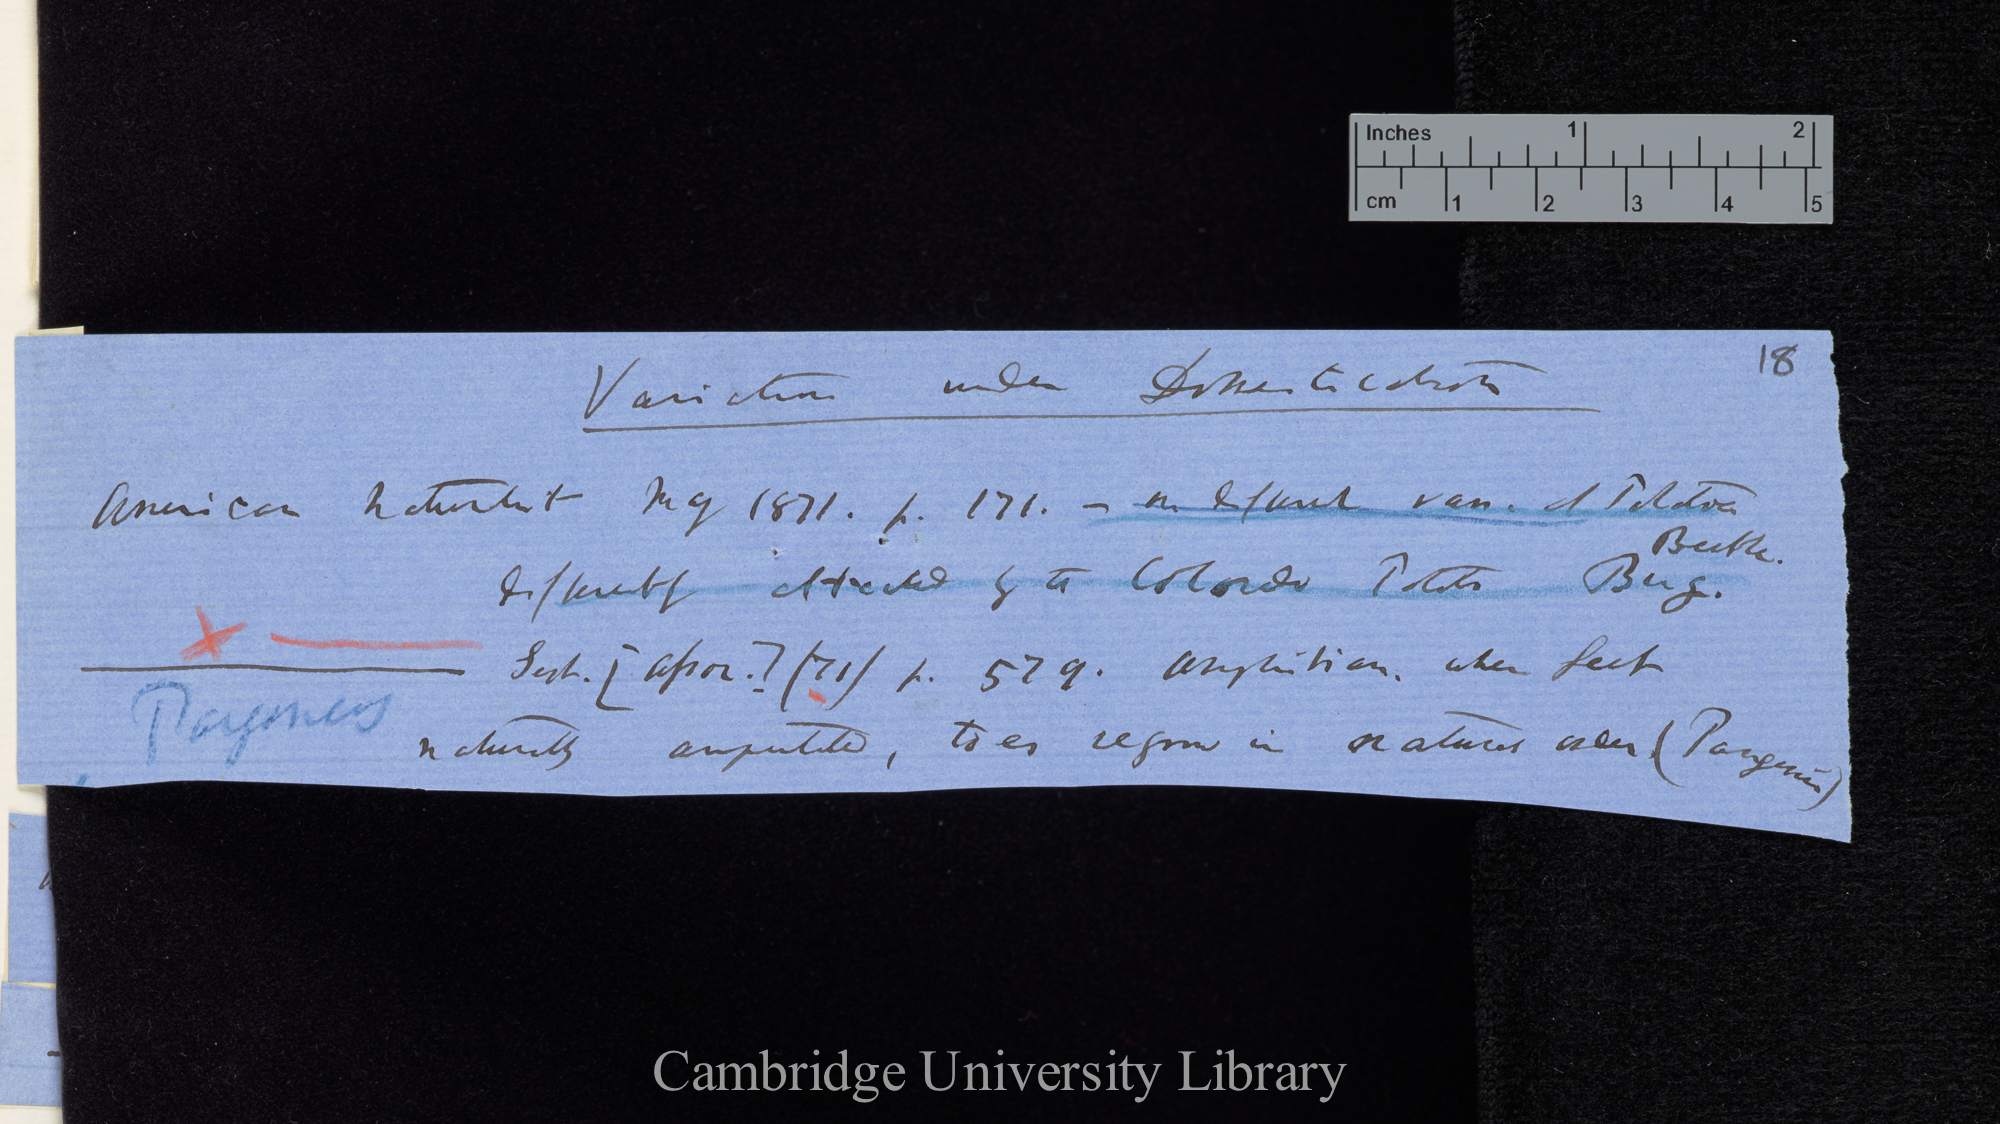 18
Variation under Domestication
American Naturalist May 1871. p. 171. — on different vars. of Potatoes
Beetle.
differently attacked by the Colorado Potato Bug.
Sept. [ (71) p. 579. Amphibian, when feet
Pangenesis
naturally amputated, toes regrow in natural order (Pangenesis)
Inches 1 2
cm 1 2 3 4 5
Cambridge University Library